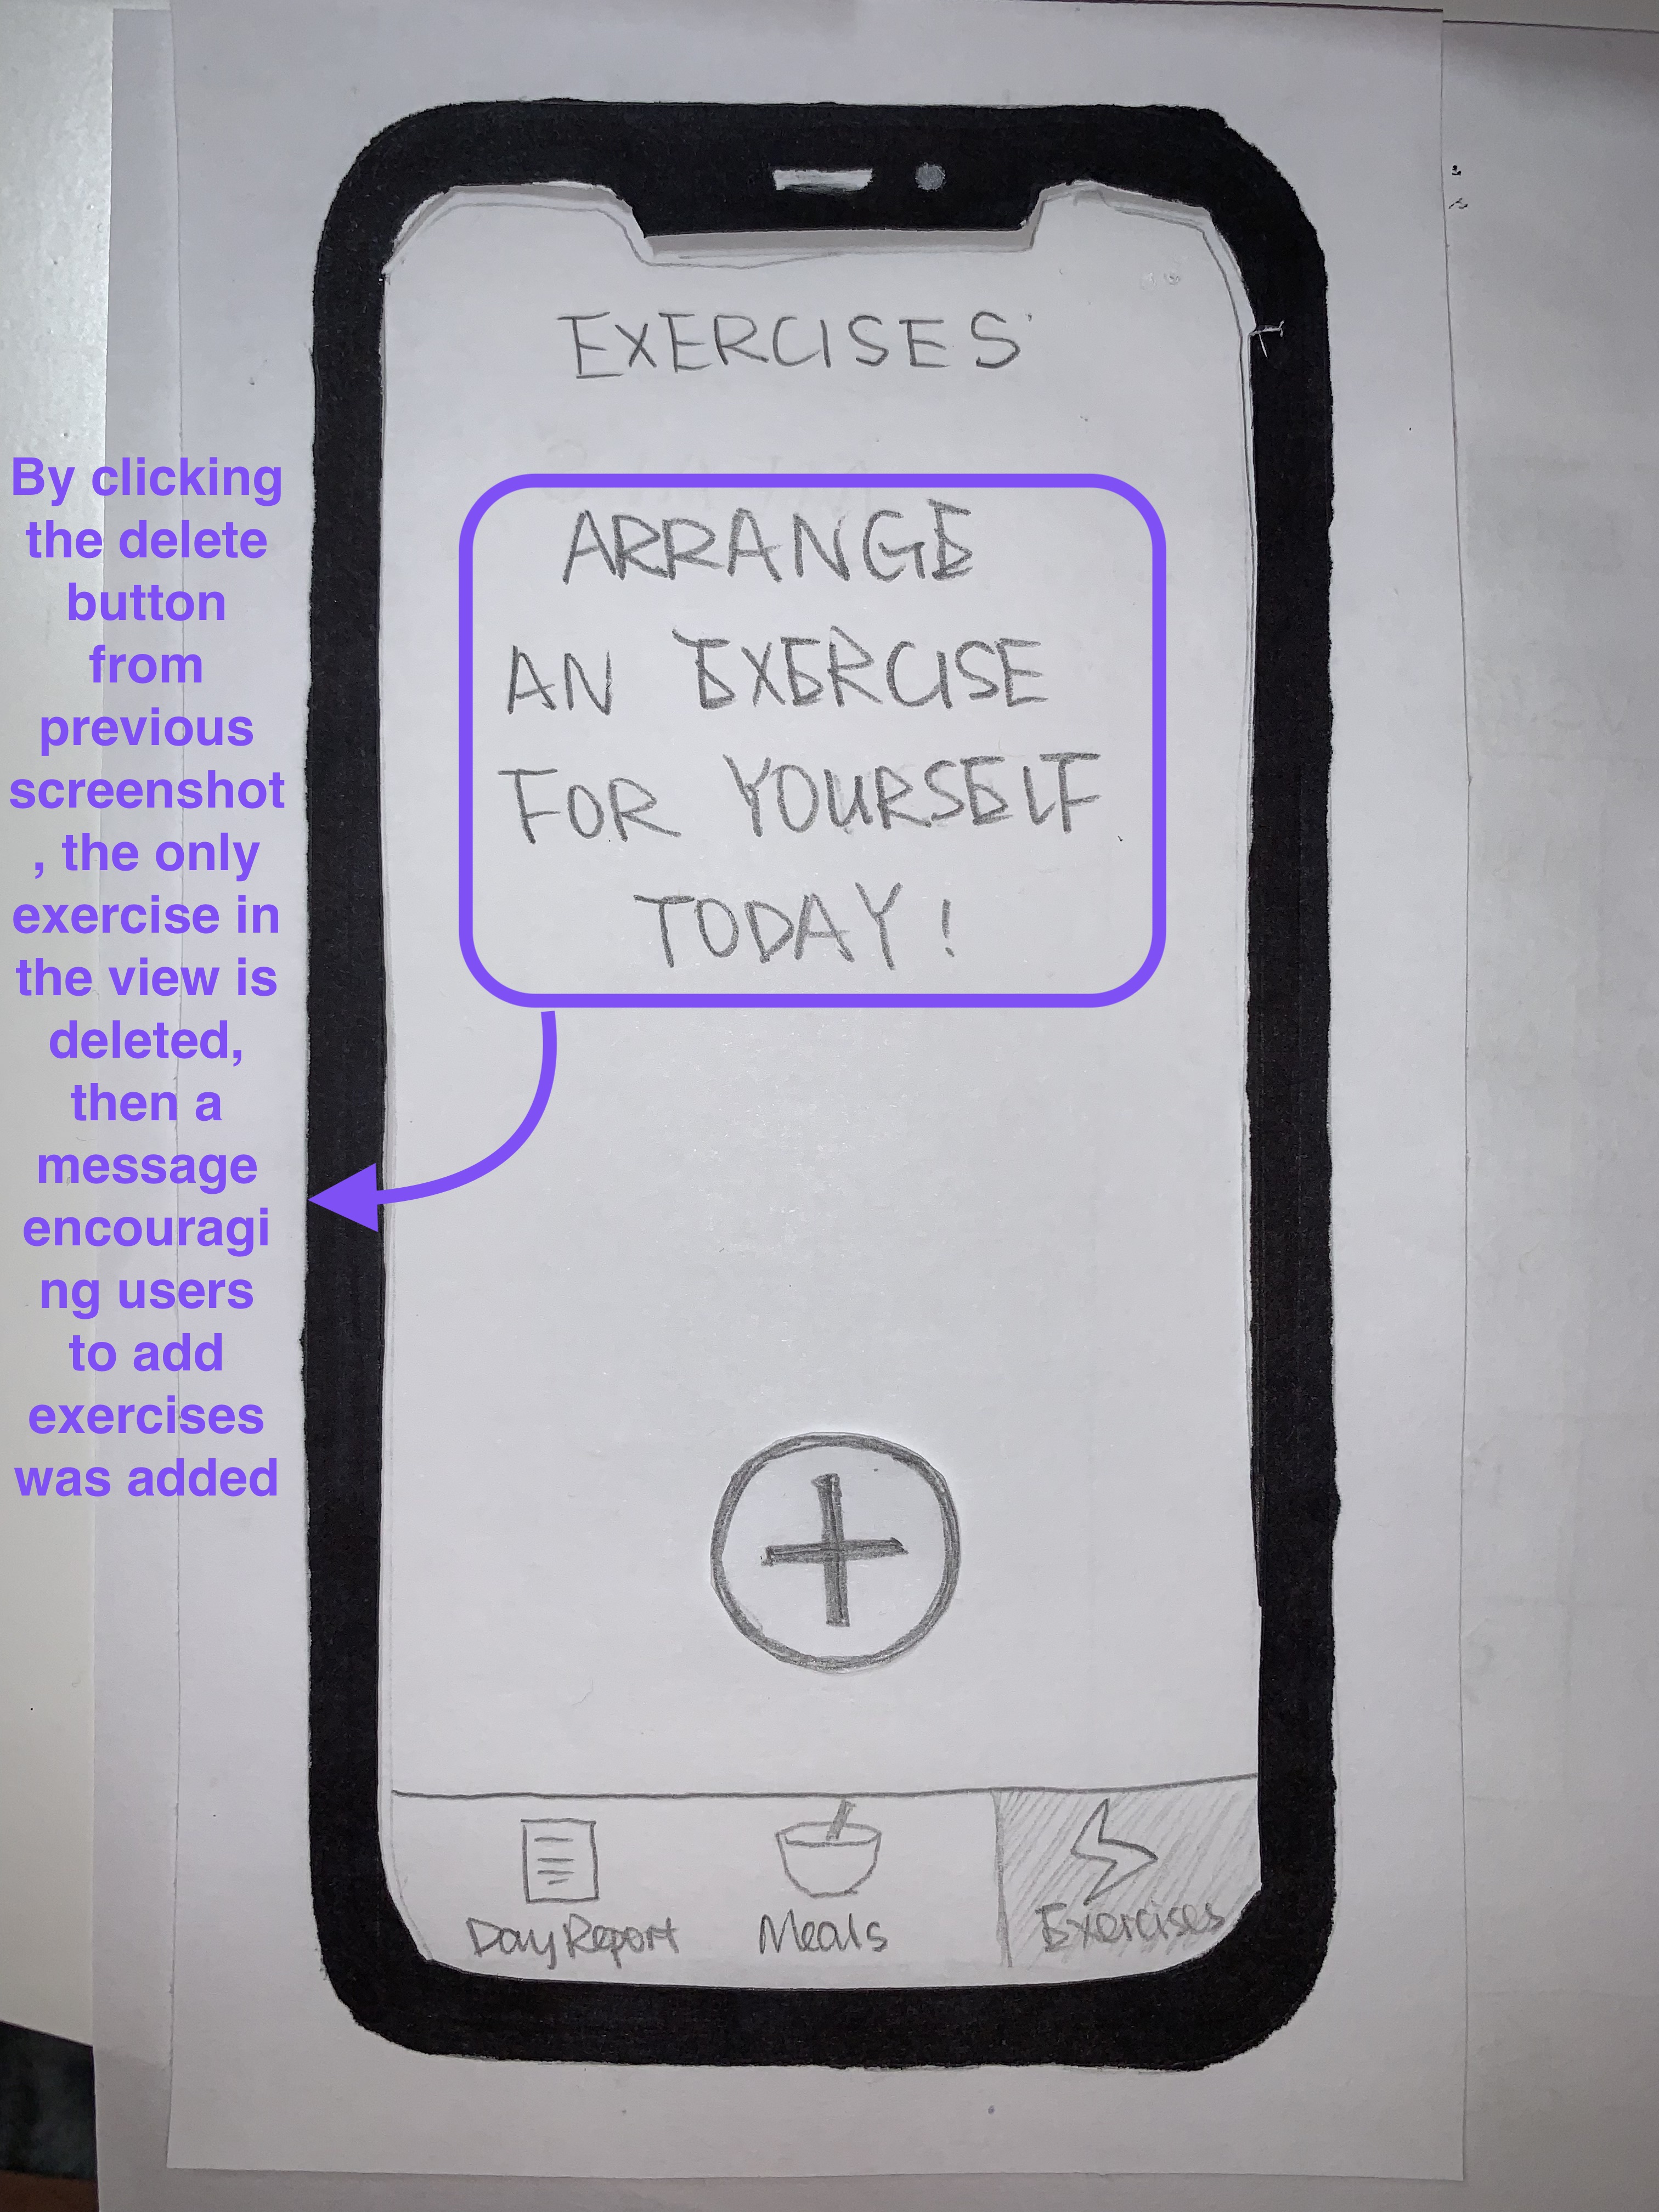 EXERCISES
ARRANGE
AN EXERCISE
FOR YOURSELF
TODAY!
By clicking
the delete
button
from
previous
screenshot
, the only
exercise in
the view is
deleted,
then a
message
encouragi
ng users
to add
exercises
was added
Day Report
Meals
Exercises